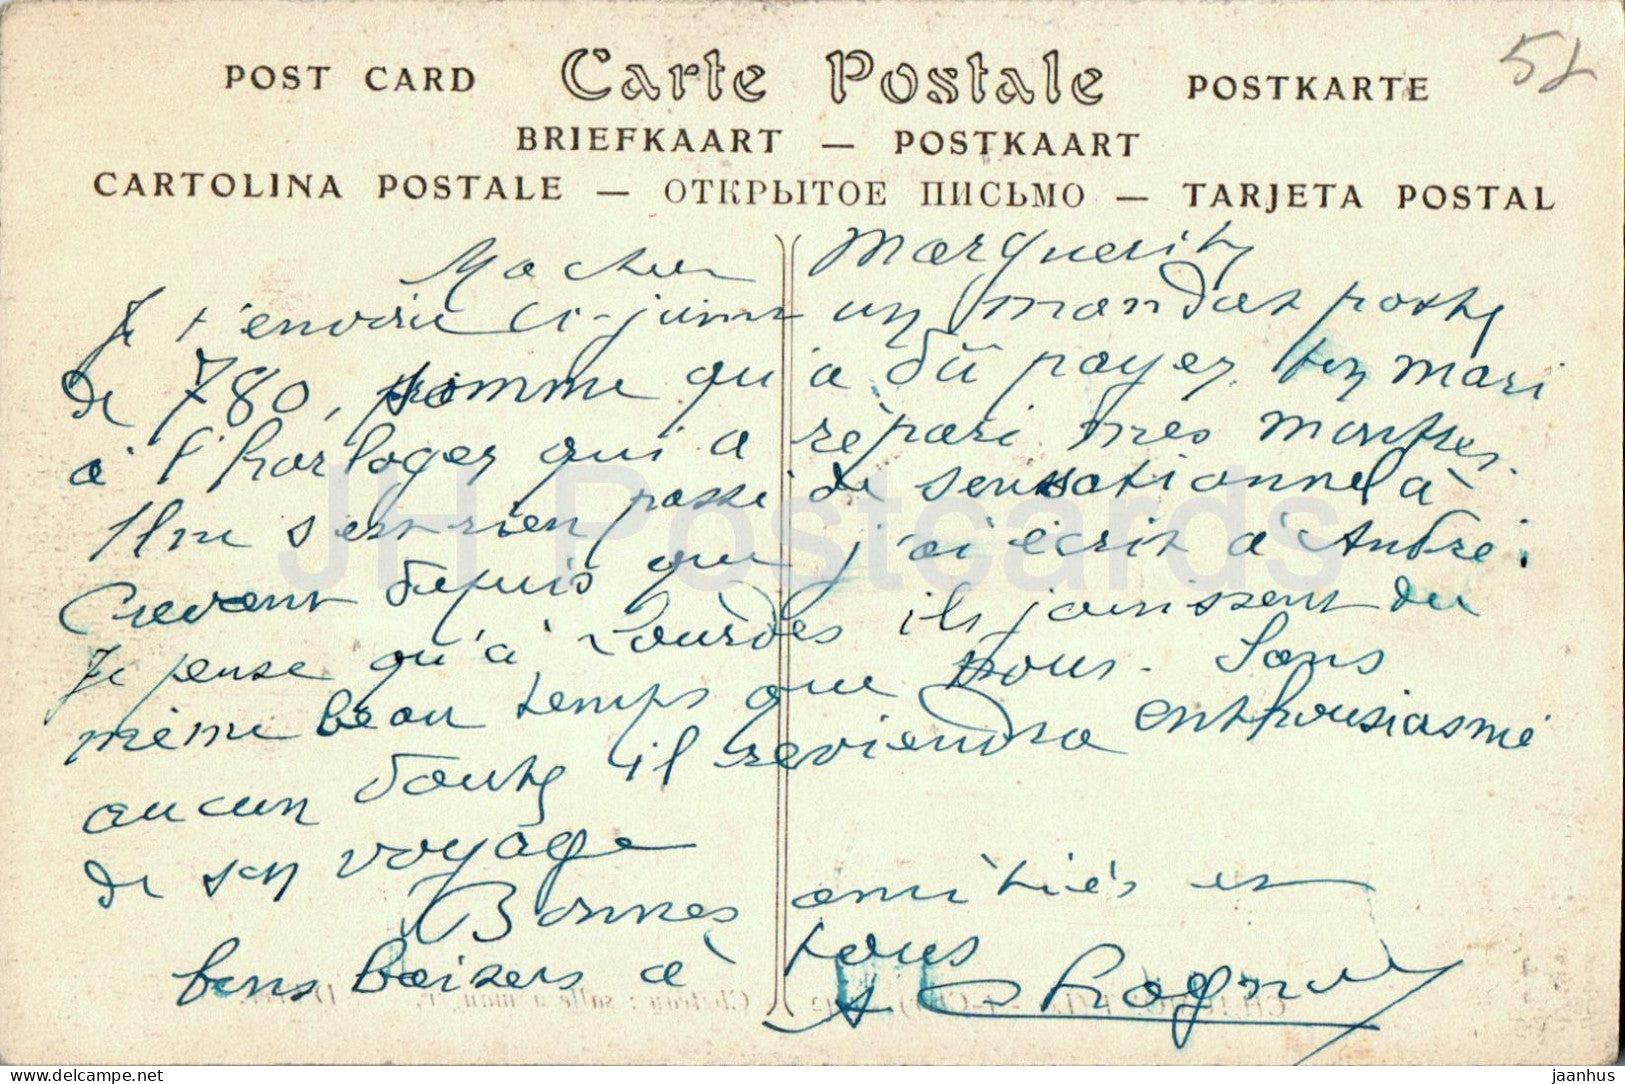 POST CARD Carte Postale POSTKARTE 52
BRIEFKAART — POSTKAART
CARTOLINA POSTALE — ОТКРЫТОЕ ПИСЬМО — TARJETA POSTAL
Ma chère Marguerite
Je t'envoie ci-joint un mandat poste
de 780, somme qu'a dû payer ton mari
à l'horloger qui a réparé mes montres.
Il ne s'est rien passé de sensationnel à
Crevant depuis que j'ai écrit à André.
Je pense qu'à Lourdes ils jouissent du
même beau temps que nous. Sans
aucun doute il reviendra enthousiasmé
de son voyage
Bonnes amitiés et
bons baisers à tous
JH Postcards
jaanhus